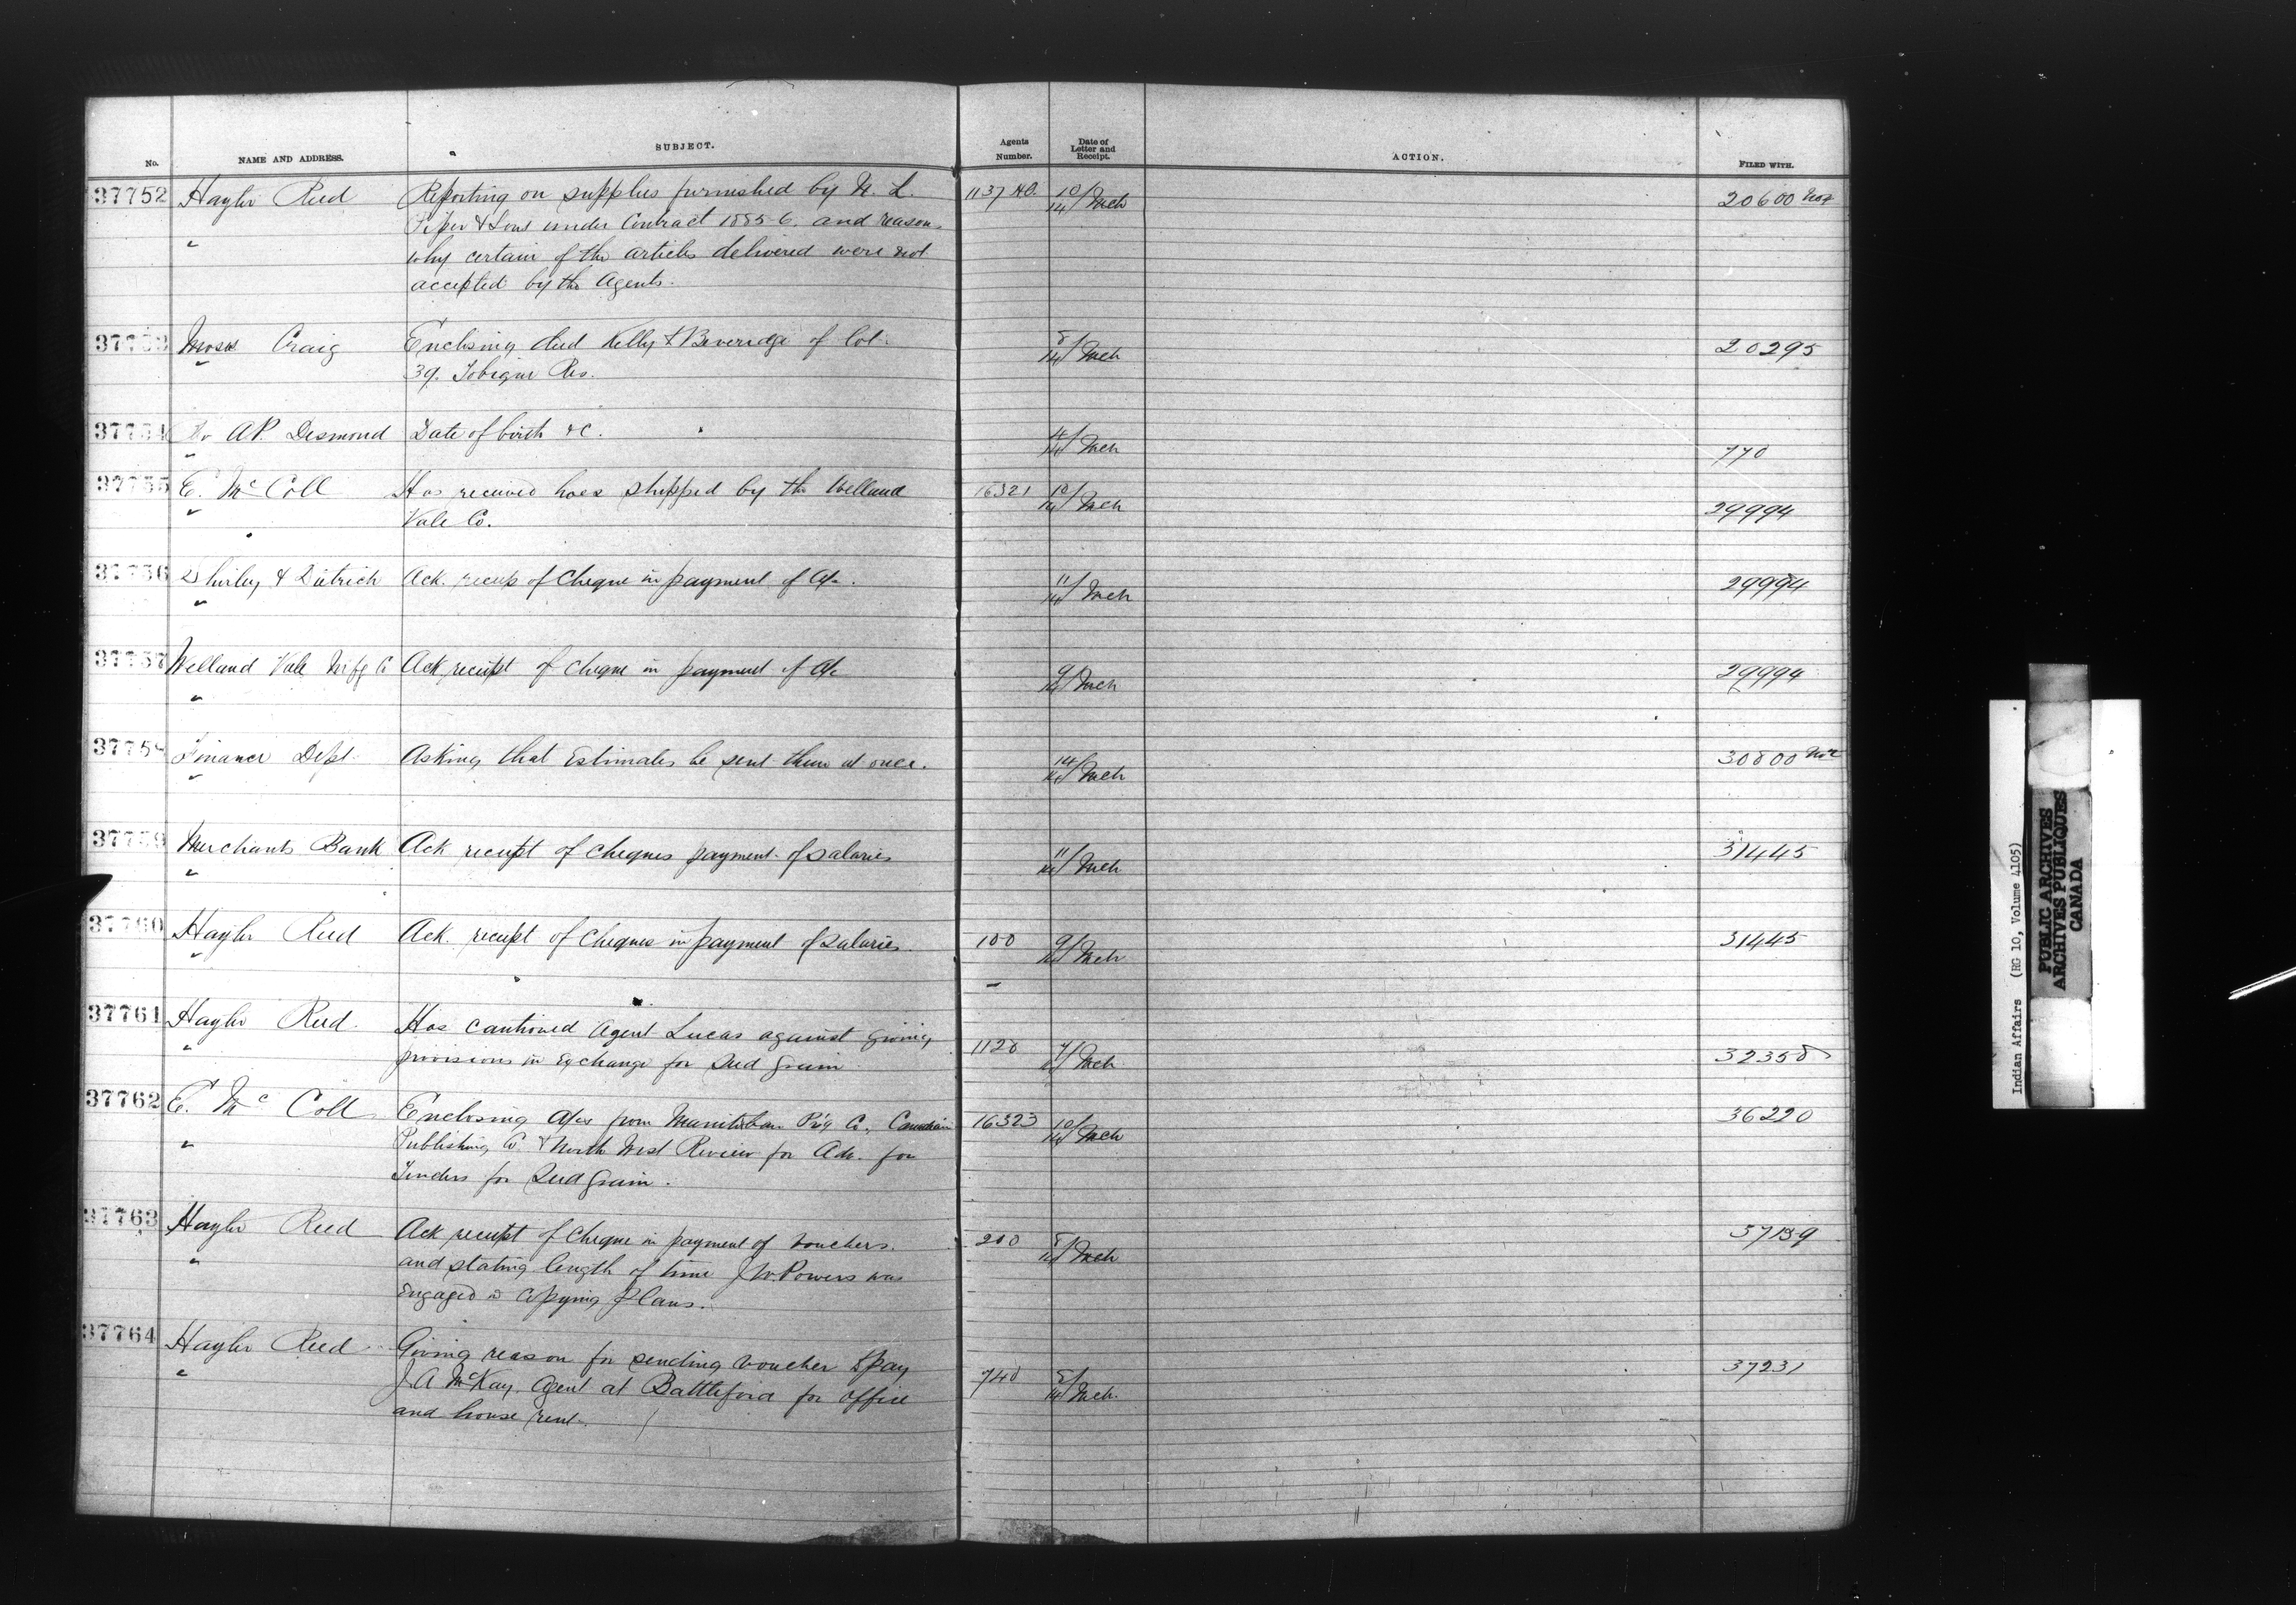 No. NAME AND ADDRESS. SUBJECT. Agents Number. Date of Letter and Receipt. ACTION. FILED WITH.
37752 Hayter Reed Reporting on supplies furnished by N. L. 1137 10/14 Mch 20600
" Piper & Sons under Contract 1885-6. and reasons
why certain of the articles delivered were not
accepted by the Agents.
37753 Moses Craig Enclosing deed Kelly & Beveridge of lot 8/14 Mch 20295
" 39. Tobique Res.
37754 Dr A.P. Desmond Date of birth &c. 14 Mch 770
"
37755 E. McColl Has received hoes shipped by the Welland 16321 10/14 Mch 29994
" Vale Co.
37756 Shirley & Dietrich Ack. receip of Cheque in payment of A/c. 11/14 Mch 29994
"
37757 Welland Vale Mfg Co Ack receipt of cheque in payment of A/c 9/14 Mch 29994
"
37758 Finance Dept. Asking that Estimates be sent them at once. 14/14 Mch 30800
"
37759 Merchants Bank Ack receipt of cheques payment of salaries 11/14 Mch 31445
"
37760 Hayter Reed Ack receipt of cheques in payment of salaries. 9/14 Mch 31445
"
37761 Hayter Reed. Has cautioned Agent Lucas against giving
" provisions in exchange for Seed grain 1128 Mch 32358
37762 E. McColl Enclosing A/cs from Manitoban P'g Co., Canadian 16323 10/14 Mch 36220
" Publishing Co. & North West Review for Adv. for
Tenders for Seed grain.
37763 Hayter Reed Ack receipt of Cheque in payment of Vouchers. 8/14 Mch 37139
" and stating length of time J W. Powers was
Engaged in copying plans.
37764 Hayter Reed Giving reason for sending voucher to pay 8/14 Mch. 37231
" J A McKay Agent at Battleford for office
and house rent.
Indian Affairs (RG 10, Volume 4105)
PUBLIC ARCHIVES
ARCHIVES PUBLIQUES
CANADA